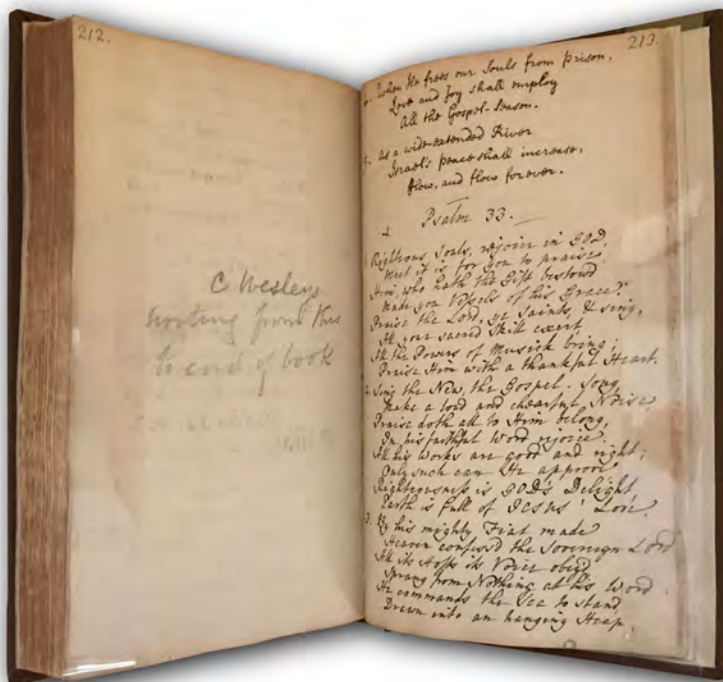 212.
C Wesleys
writing from this
to end of book
213.
4. When He frees our Souls from prison,
Love and Joy shall employ
All the Gospel-Season.
5. As a wide-extended River
Israel's peace shall increase,
Flow, and flow forever.
Psalm 33.
1
Righteous Souls, rejoice in GOD,
Meet it is for you to praise
Him, who hath the Gift bestow'd
Made you Vessels of his Grace:
Praise the Lord, ye Saints, & sing,
All your sacred Skill exert,
All the Powers of Musick bring;
Praise Him with a thankful Heart.
2. Sing the New, the Gospel-Song,
Make a loud and chearful Noise,
Praise doth all to Him belong,
In his faithful Word rejoice.
All his Works are good and right;
Only such can He approve,
Righteousness is GOD's Delight,
Earth is full of JESUS' Love.
3. By his mighty Fiat made
Heaven confess'd the Sovereign Lord
All its Hosts its Voice obey'd
Sprang from Nothing at his Word
He commands the Sea to stand
Drawn into an hanging Heap,